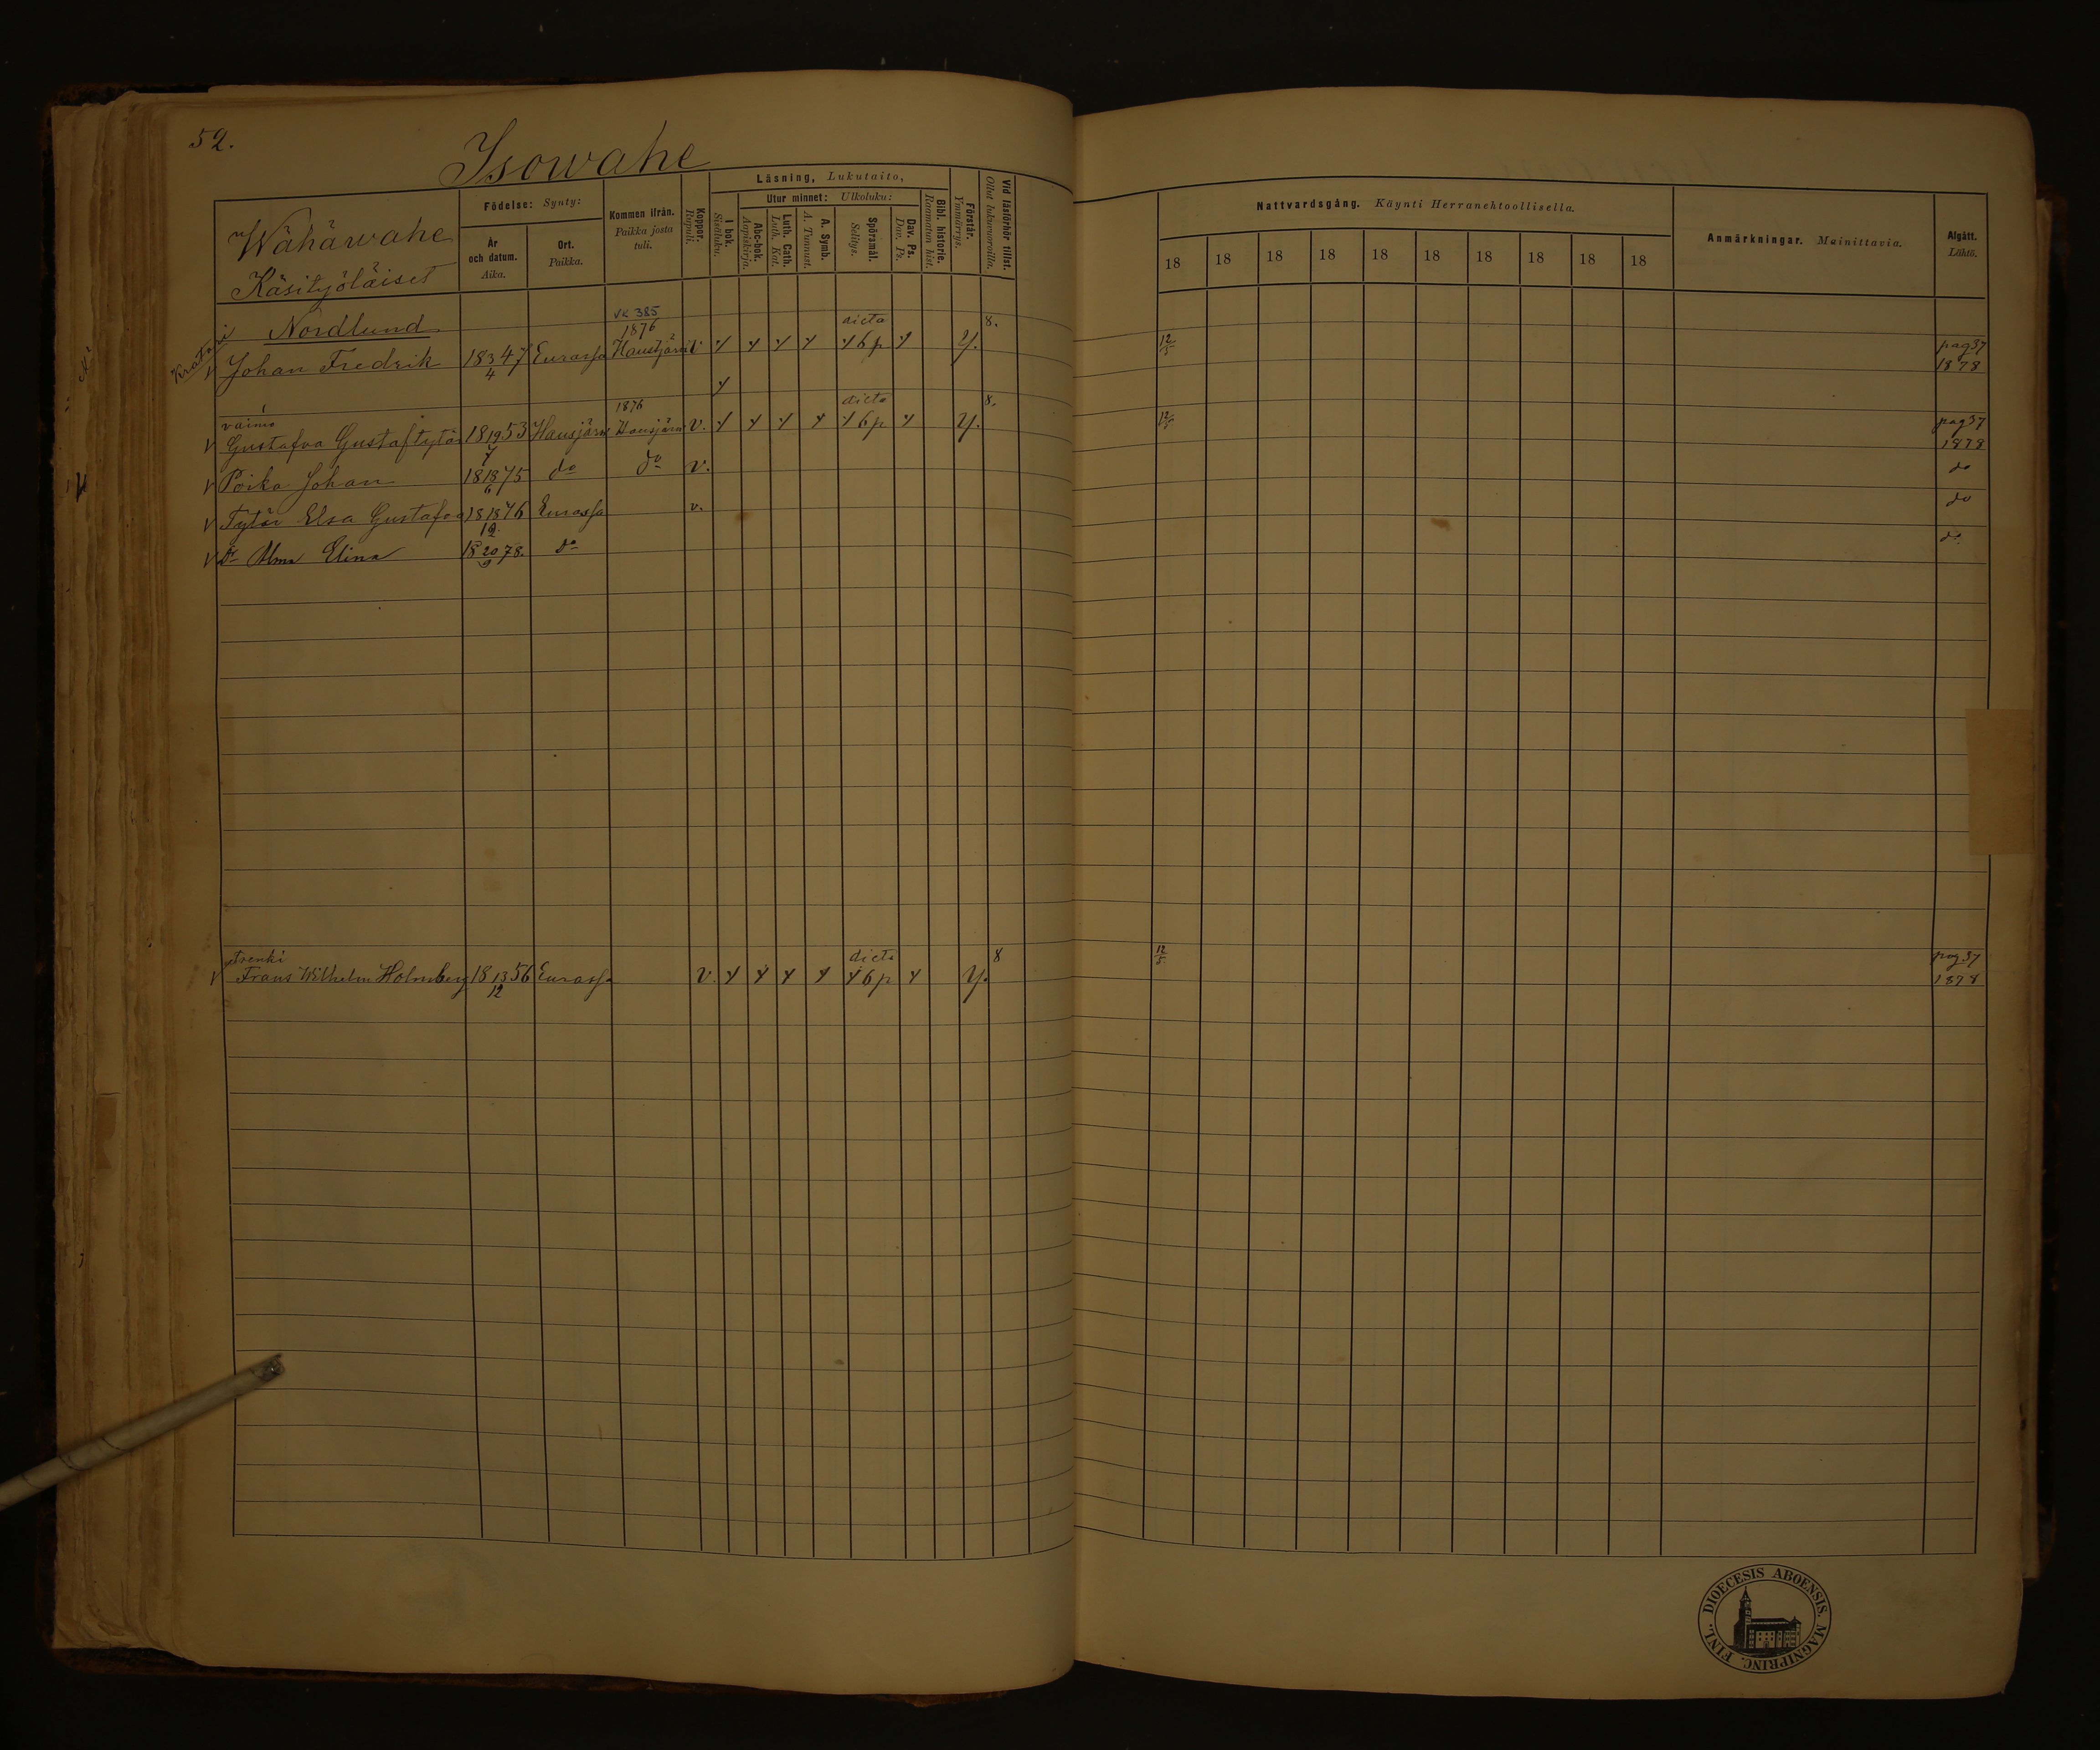 52.
Isowahe
Wähäwahe
Käsityöläiset
Födelse: Synty:
År och datum. Aika.
Ort. Paikka.
Kommen ifrån. Paikka josta tuli.
Koppor. Rupuli.
Läsning, Lukutaito,
I bok. Sisäluku.
Utur minnet: Ulkoluku:
Abc-bok. Aapiskirja.
Luth. Cath. Luth. Kat.
A. Symb. A. Tunnust.
Spörsmål. Selityn.
Dav. Ps. Dav. Ps.
Bibl. historie. Raamatun hist.
Förstår. Ymmärrys.
Vid läsförhör tillst. Ollut lukuvuoroilla.
Nattvardsgång. Käynti Herranehtoollisella.
18 18 18 18 18 18 18 18 18 18
Anmärkningar. Muinittavia.
Afgått. Lähtö.
Nordlund VK 385
1876 dicta 8.
Kratari Johan Fredrik 18 3/4 47 Eurassa Hausjärvi v. y y y y y 6 p y y. 12/5 pag 37 1878
y
vaimo 1876 dicta 8.
Gustafva Gustaftytär 18 19/4 53 Hausjärvi Hausjärvi v. y y y y y 6 p y y. 12/5 pag 37 1878
Poika Johan 18 18/6 75 do do v. do
Tytär Elsa Gustafva 18 18/12 76 Eurassa v. do
Dr Alma Elina 18 20/9 78. do do
trenki dicta 8
Frans Wilhelm Holmberg 18 13/12 56 Eurassa v. y y y y y 6 p y y. 12/5 pag 37 1878
DIOECESIS ABOENSIS. MAGNIPRINC. FINL.